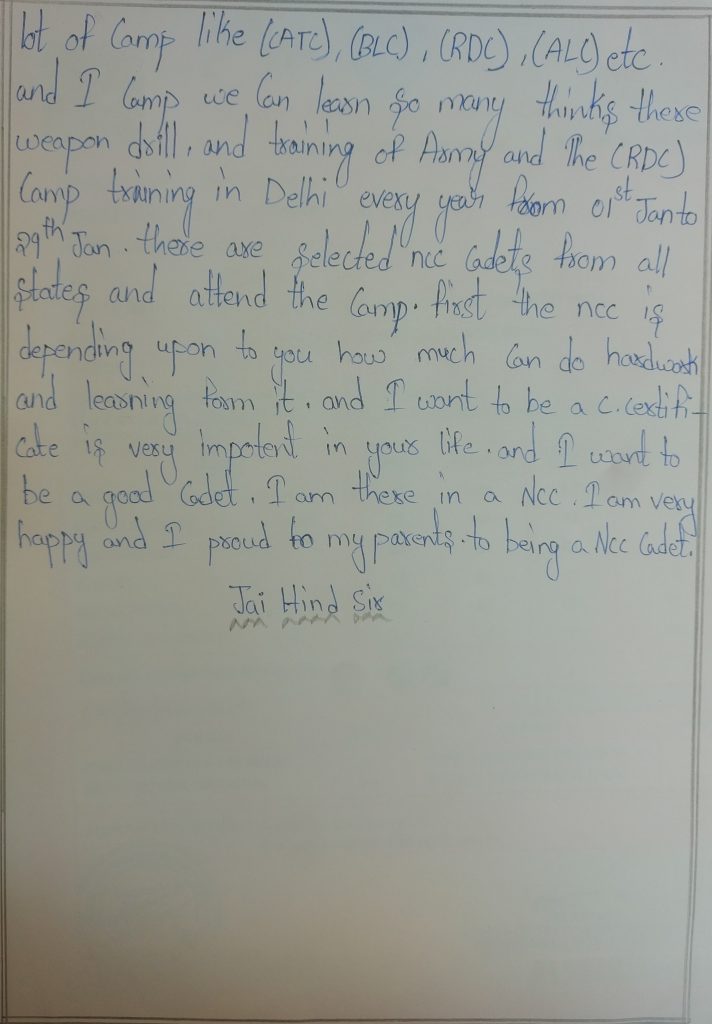 lot of Camp like (CATC), (BLC), (RDC), (ALC) etc.
and I Camp we Can learn so many thinks there
weapon drill, and training of Army and The (RDC)
Camp training in Delhi every year from 01st Jan to
29th Jan. there are selected ncc Cadets from all
states and attend the Camp. first the ncc is
depending upon to you how much Can do hardwork
and learning form it. and I want to be a C. certifi-
cate is very impotent in your life. and I want to
be a good Cadet. I am there in a NCC. I am very
happy and I proud to my parents. to being a Ncc Cadet.
Jai Hind Sir